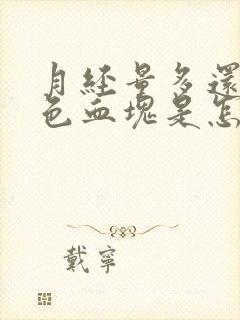 月經量多還
色血塊是怎
戴寧